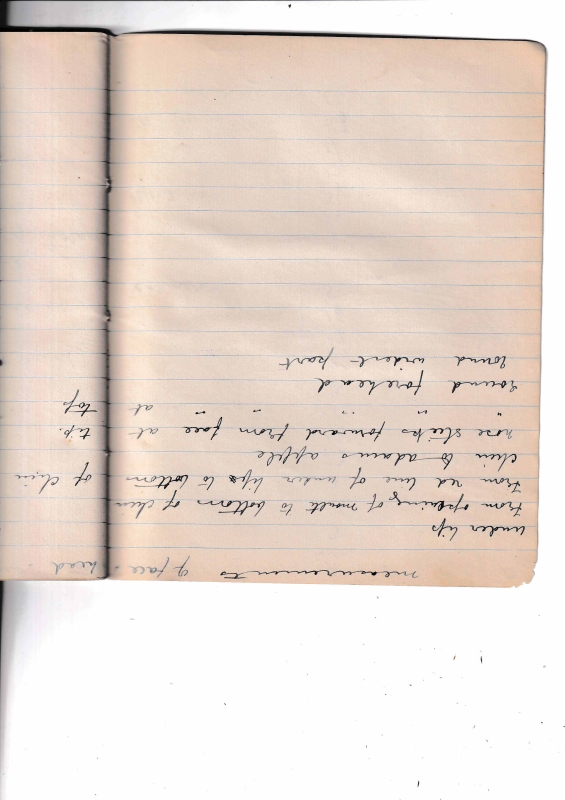 measurements of face & head
under lip
from opening of mouth to bottom of chin
from red line of under lip to bottom of chin
chin to adams apple
nose sticks forward from face at tip.
" " " " at top
round forehead
round widest part